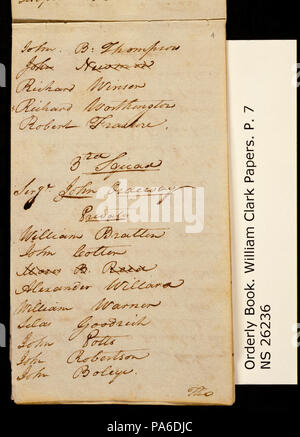 John. B. Thompson
John Newman
Richard Winsor
Richard Worthington
Robert Frasure.
3rd Squad
Serg. John Ordway
Privats
William Bratten
John Colter
Moses B. Reed
Alexander Willard
William Warner
Silas Goodrich
John Potts
John Robertson
John Boleye.
The
Orderly Book. William Clark Papers. P. 7
NS 26236
alamy
Image ID: PA6DJC
www.alamy.com